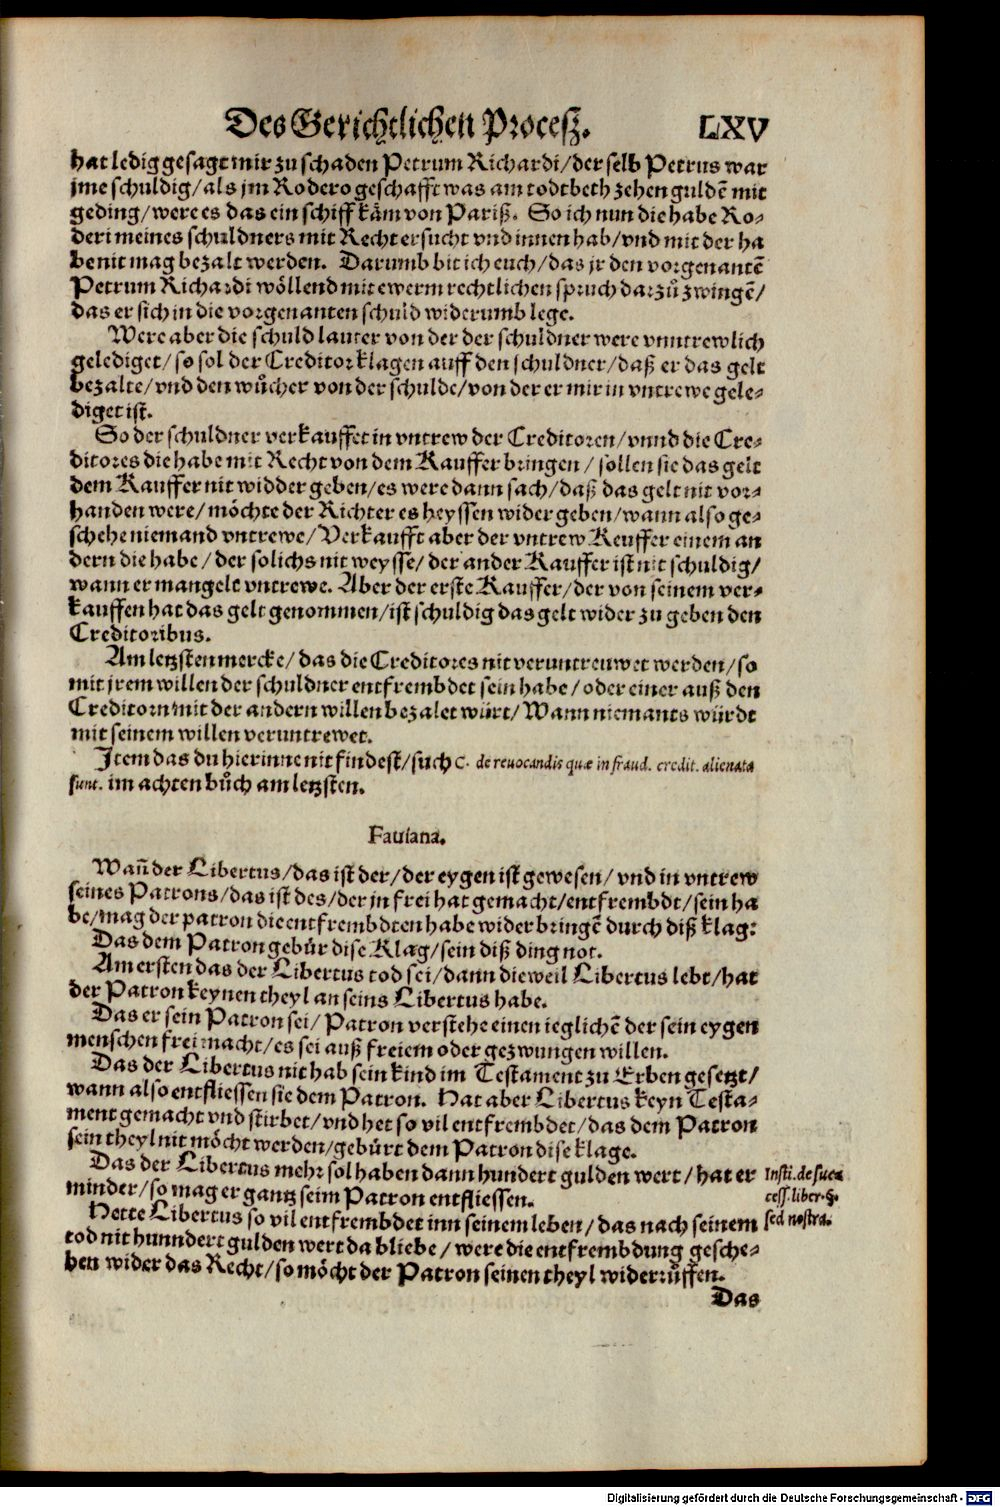 Des Gerichtlichen Procesz. LXV
hat ledig gesagt mir zu schaden Petrum Richardi/ der selb Petrus war
jme schuldig/ als jm Rodero geschafft was am todtbeth zehen guldẽ mit
geding/ were es das ein schiff käm von Pariß. So ich nun die habe Ro-
deri meines schuldners mit Recht ersucht vnd innen hab/ vnd mit der ha
be nit mag bezalt werden. Darumb bit ich euch/ das jr den vorgenantẽ
Petrum Richardi wöllend mit ewerm rechtlichen spruch darzů zwingẽ/
das er sich in die vorgenanten schuld widerumb lege.
Were aber die schuld lauter von der der schuldner were vnntrewlich
gelediget/ so sol der Creditor klagen auff den schuldner/ daß er das gelt
bezalte/ vnd den wůcher von der schulde/ von der er mir in vntrewe gele-
diget ist.
So der schuldner verkauffet in vntrew der Creditoren/ vnnd die Cre-
ditores die habe mit Recht von dem Kauffer bringen/ sollen sie das gelt
dem Kauffer nit widder geben/ es were dann sach/ daß das gelt nit vor-
handen were/ möchte der Richter es heyssen wider geben/ wann also ge-
schehe niemand vntrewe/ Verkaufft aber der vntrew Keuffer einem an
dern die habe/ der solichs nit weysse/ der ander Kauffer ist nit schuldig/
wann er mangelt vntrewe. Aber der erste Kauffer/ der von seinem ver-
kauffen hat das gelt genommen/ ist schuldig das gelt wider zu geben den
Creditoribus.
Am letzsten mercke/ das die Creditores nit veruntreuwet werden/ so
mit jrem willen der schuldner entfrembdet sein habe/ oder einer auß den
Creditorn mit der andern willen bezalet würt/ Wann niemants würdt
mit seinem willen veruntrewet.
Jtem das du hierinne nit findest/ such C. de reuocandis quæ in fraud. credit. alienata
sunt. im achten bůch am letzsten.
Fauiana.
Wañ der Libertus/ das ist der/ der eygen ist gewesen/ vnd in vntrew
seines Patrons/ das ist des/ der jn frei hat gemacht/ entfrembdt/ sein ha
be/ mag der patron die entfrembdten habe wider bringẽ durch diß klag:
Das dem Patron gebür dise Klag/ sein diß ding not.
Am ersten das der Libertus tod sei/ dann dieweil Libertus lebt/ hat
der Patron keynen theyl an seins Libertus habe.
Das er sein Patron sei/ Patron verstehe einen ieglichẽ der sein eygen
menschen frei macht/ es sei auß freiem oder gezwungen willen.
Das der Libertus nit hab sein kind im Testament zu Erben gesetzt/
wann also entfliessen sie dem Patron. Hat aber Libertus keyn Testa-
ment gemacht vnd stirbet/ vnd het so vil entfrembdet/ das dem Patron
sein theyl nit möcht werden/ gebürt dem Patron dise klage.
Das der Libertus mehr sol haben dann hundert gulden wert/ hat er
minder/ so mag er gantz seim Patron entfliessen.
Insti. de suc-
cess. liber. §.
sed nostra.
Hette Libertus so vil entfrembdet inn seinem leben/ das nach seinem
tod nit hunndert gulden wert da bliebe/ were die entfrembdung gesche-
hen wider das Recht/ so möcht der Patron seinen theyl widerrůffen.
Das
Digitalisierung gefördert durch die Deutsche Forschungsgemeinschaft - DFG